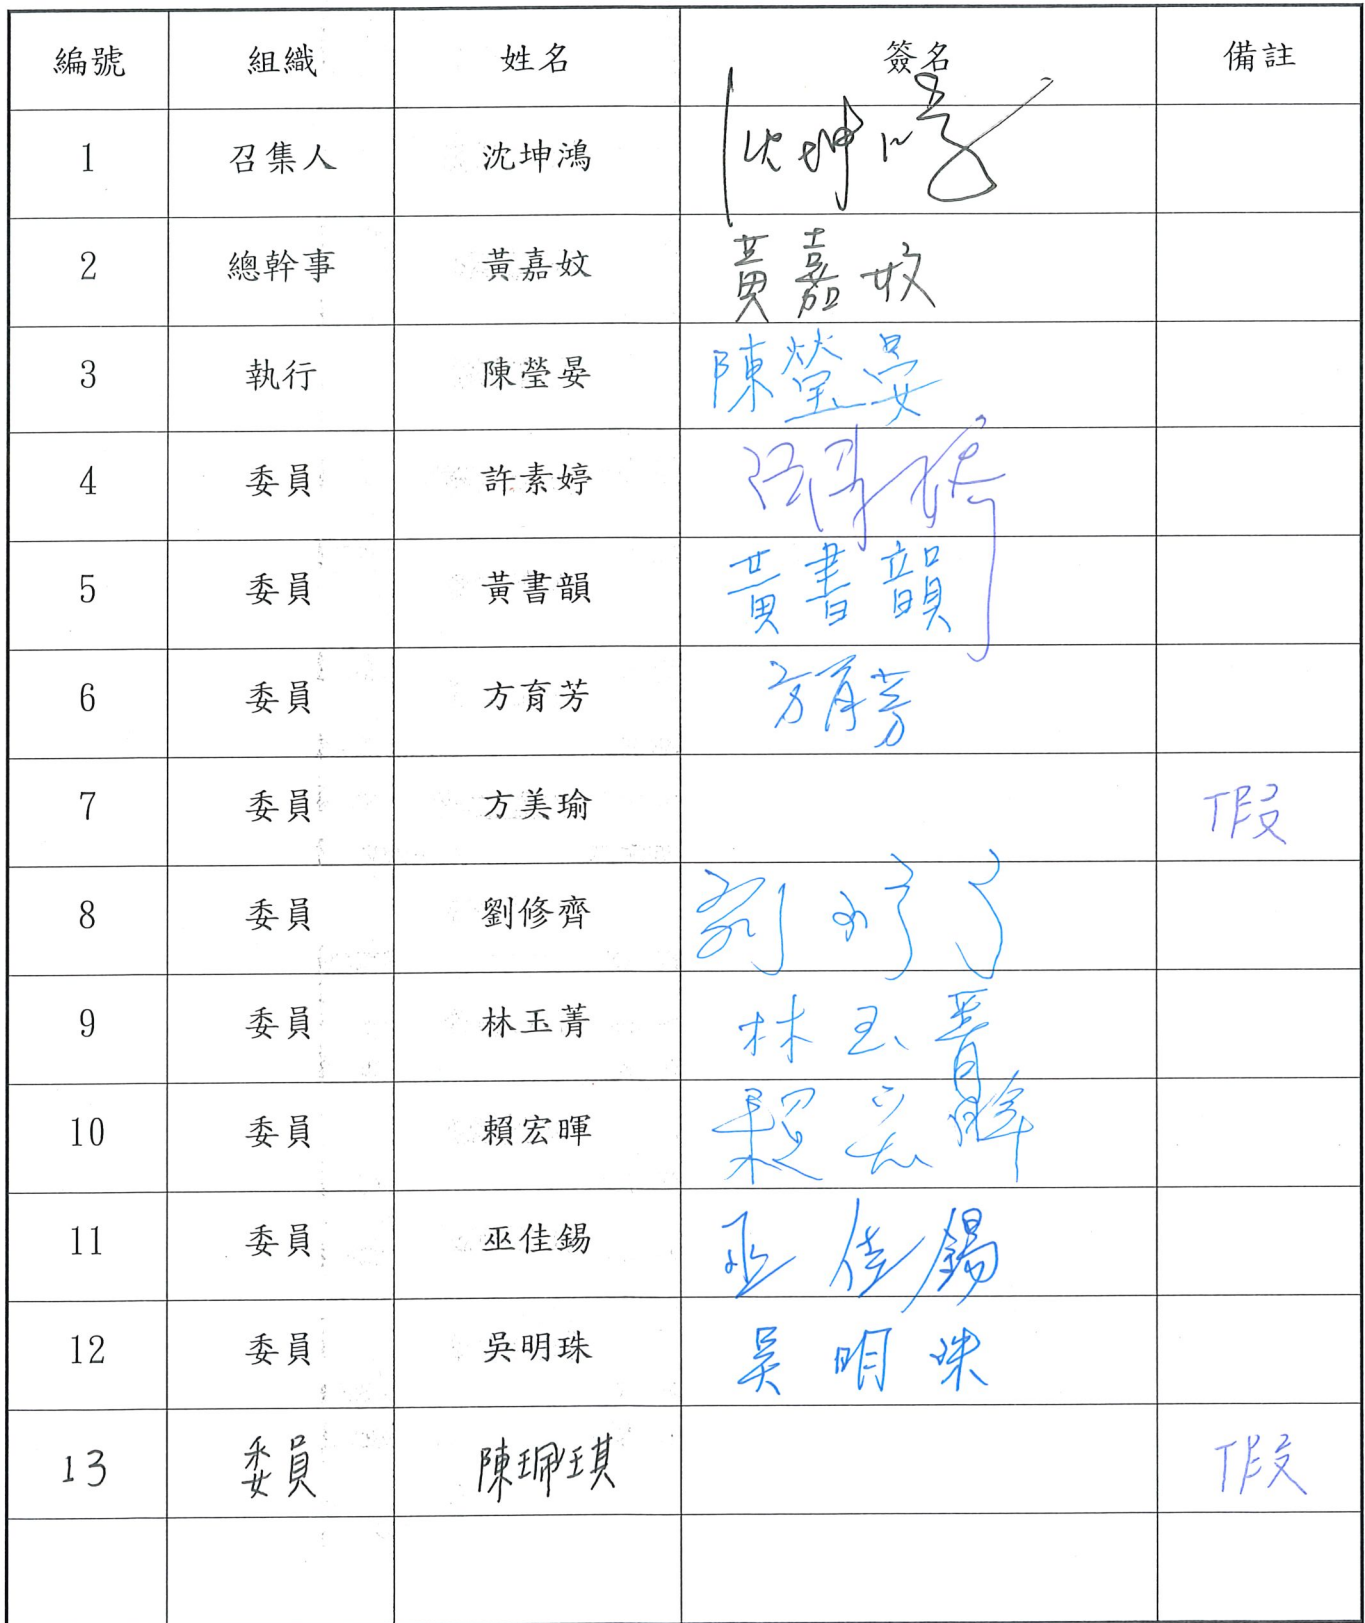 編號 組織 姓名 簽名 備註
1 召集人 沈坤鴻 沈坤鴻
2 總幹事 黃嘉妏 黃嘉妏
3 執行 陳瑩晏 陳瑩晏
4 委員 許素婷
5 委員 黃書韻 黃書韻
6 委員 方育芳 方育芳
7 委員 方美瑜 假
8 委員 劉修齊 劉修齊
9 委員 林玉菁 林玉菁
10 委員 賴宏暉 賴宏暉
11 委員 巫佳錫 巫佳錫
12 委員 吳明珠 吳明珠
13 委員 陳珮琪 假